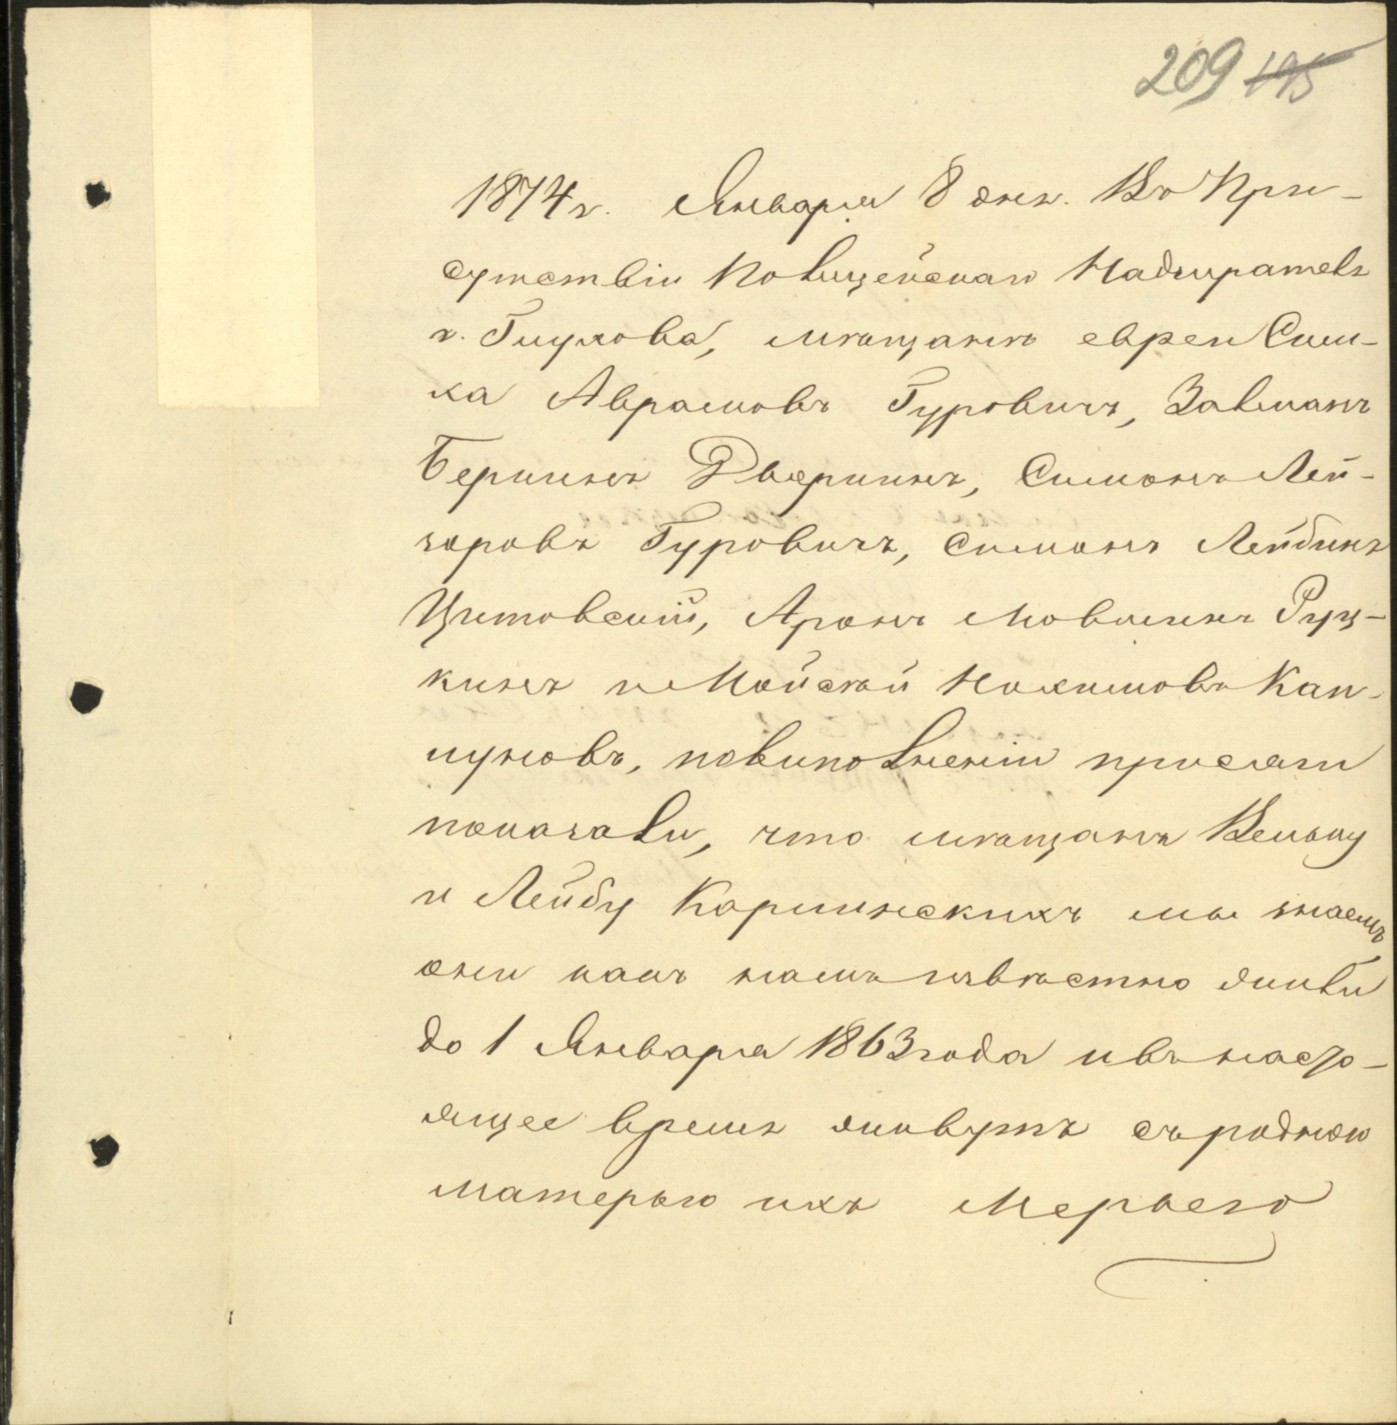 209 195
1874 г. Января 8 дня. Въ При-
сутствіи Полицейскаго Надзирателя
г. Глухова, мѣщане евреи Сим-
ха Аврамовъ Гуровичъ, Залманъ
Беркинъ Дворкинъ, Симонъ Лей-
зоровъ Гуровичъ, Симонъ Лейбинъ
Цитовскій, Аронъ Мовшинъ Руц-
кинъ и Мойсей Нохимовъ Кап-
луновъ, повыполненіи присяги
показали, что мѣщанъ
и Лейбу мы знаемъ
они какъ намъ извѣстно жили
до 1 Января 1863 года и въ насто-
ящее время живутъ съ родною
матерью ихъ Мерьею